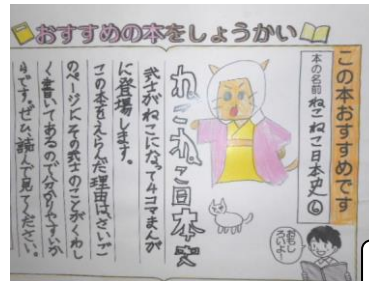 おすすめの本をしょうかい
この本おすすめです
本の名前 ねこねこ日本史⑥
ねこねこ日本史
武士がねこになって4コマまんが
に登場します。
この本をえらんだ理由は、さいご
のページにその武士のことがくわし
く書いてあるので分かりやすいか
らです。ぜひ、読んで見てください。
おもし
ろいよ!